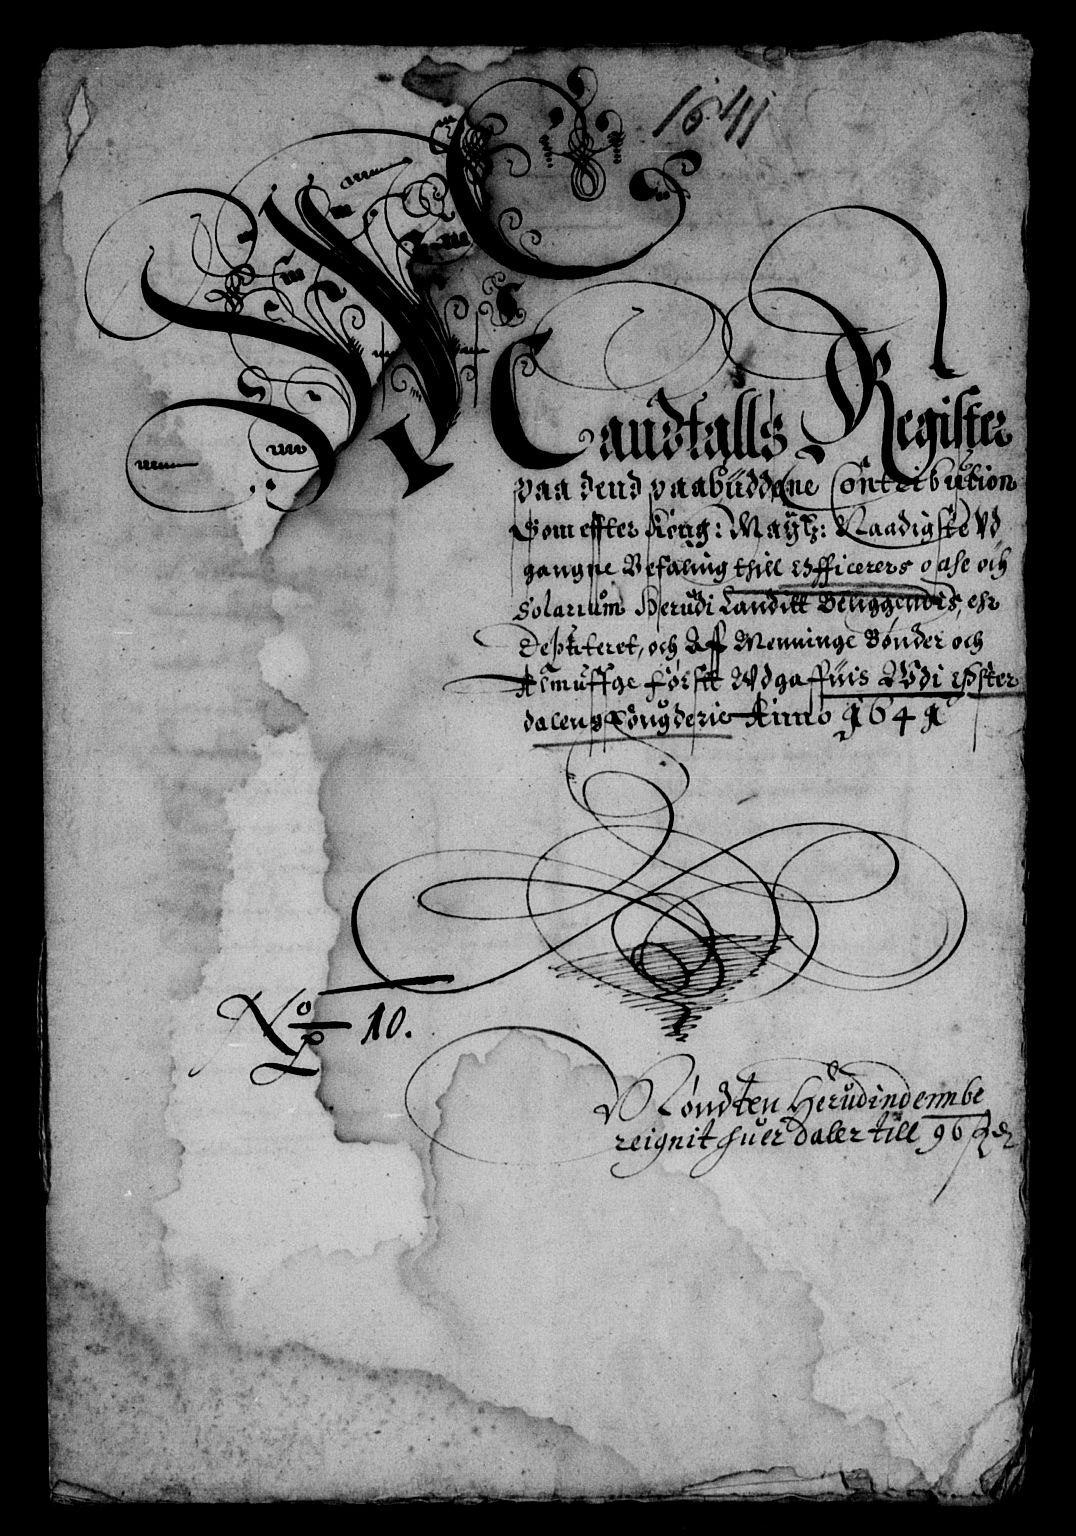 1641
Mandtalls Register
paa dend paabuddene Contribution
Som effter Kong: Maytz: Naadigste Vd
gangne Befaling thill Officerers och
Solarium Herudi Landitt Beliggendis, ehr
och Aff Menninge Bønder och
Almuffge førstt Wdgaffuis Wdi Østter
dalens Fougderie Anno 1641
No 10.
Møndten Herudinden be
reignit huer daler till 96